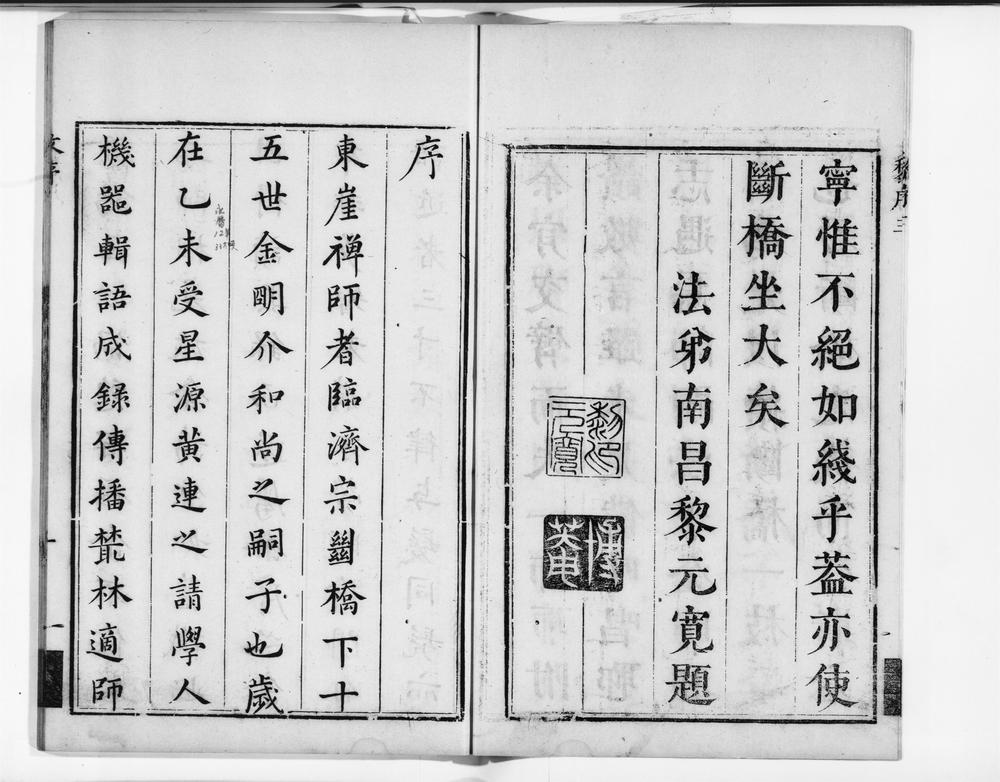 黎序三
寧惟不絕如綫乎葢亦使
斷橋坐大矣
法弟南昌黎元寬題
黎印元寬
博菴
序
東崖禅師者臨濟宗斷橋下十
五世金明介和尚之嗣子也歲
在乙未受星源黄連之請學人
機噐輯語成錄傳播藂林適師